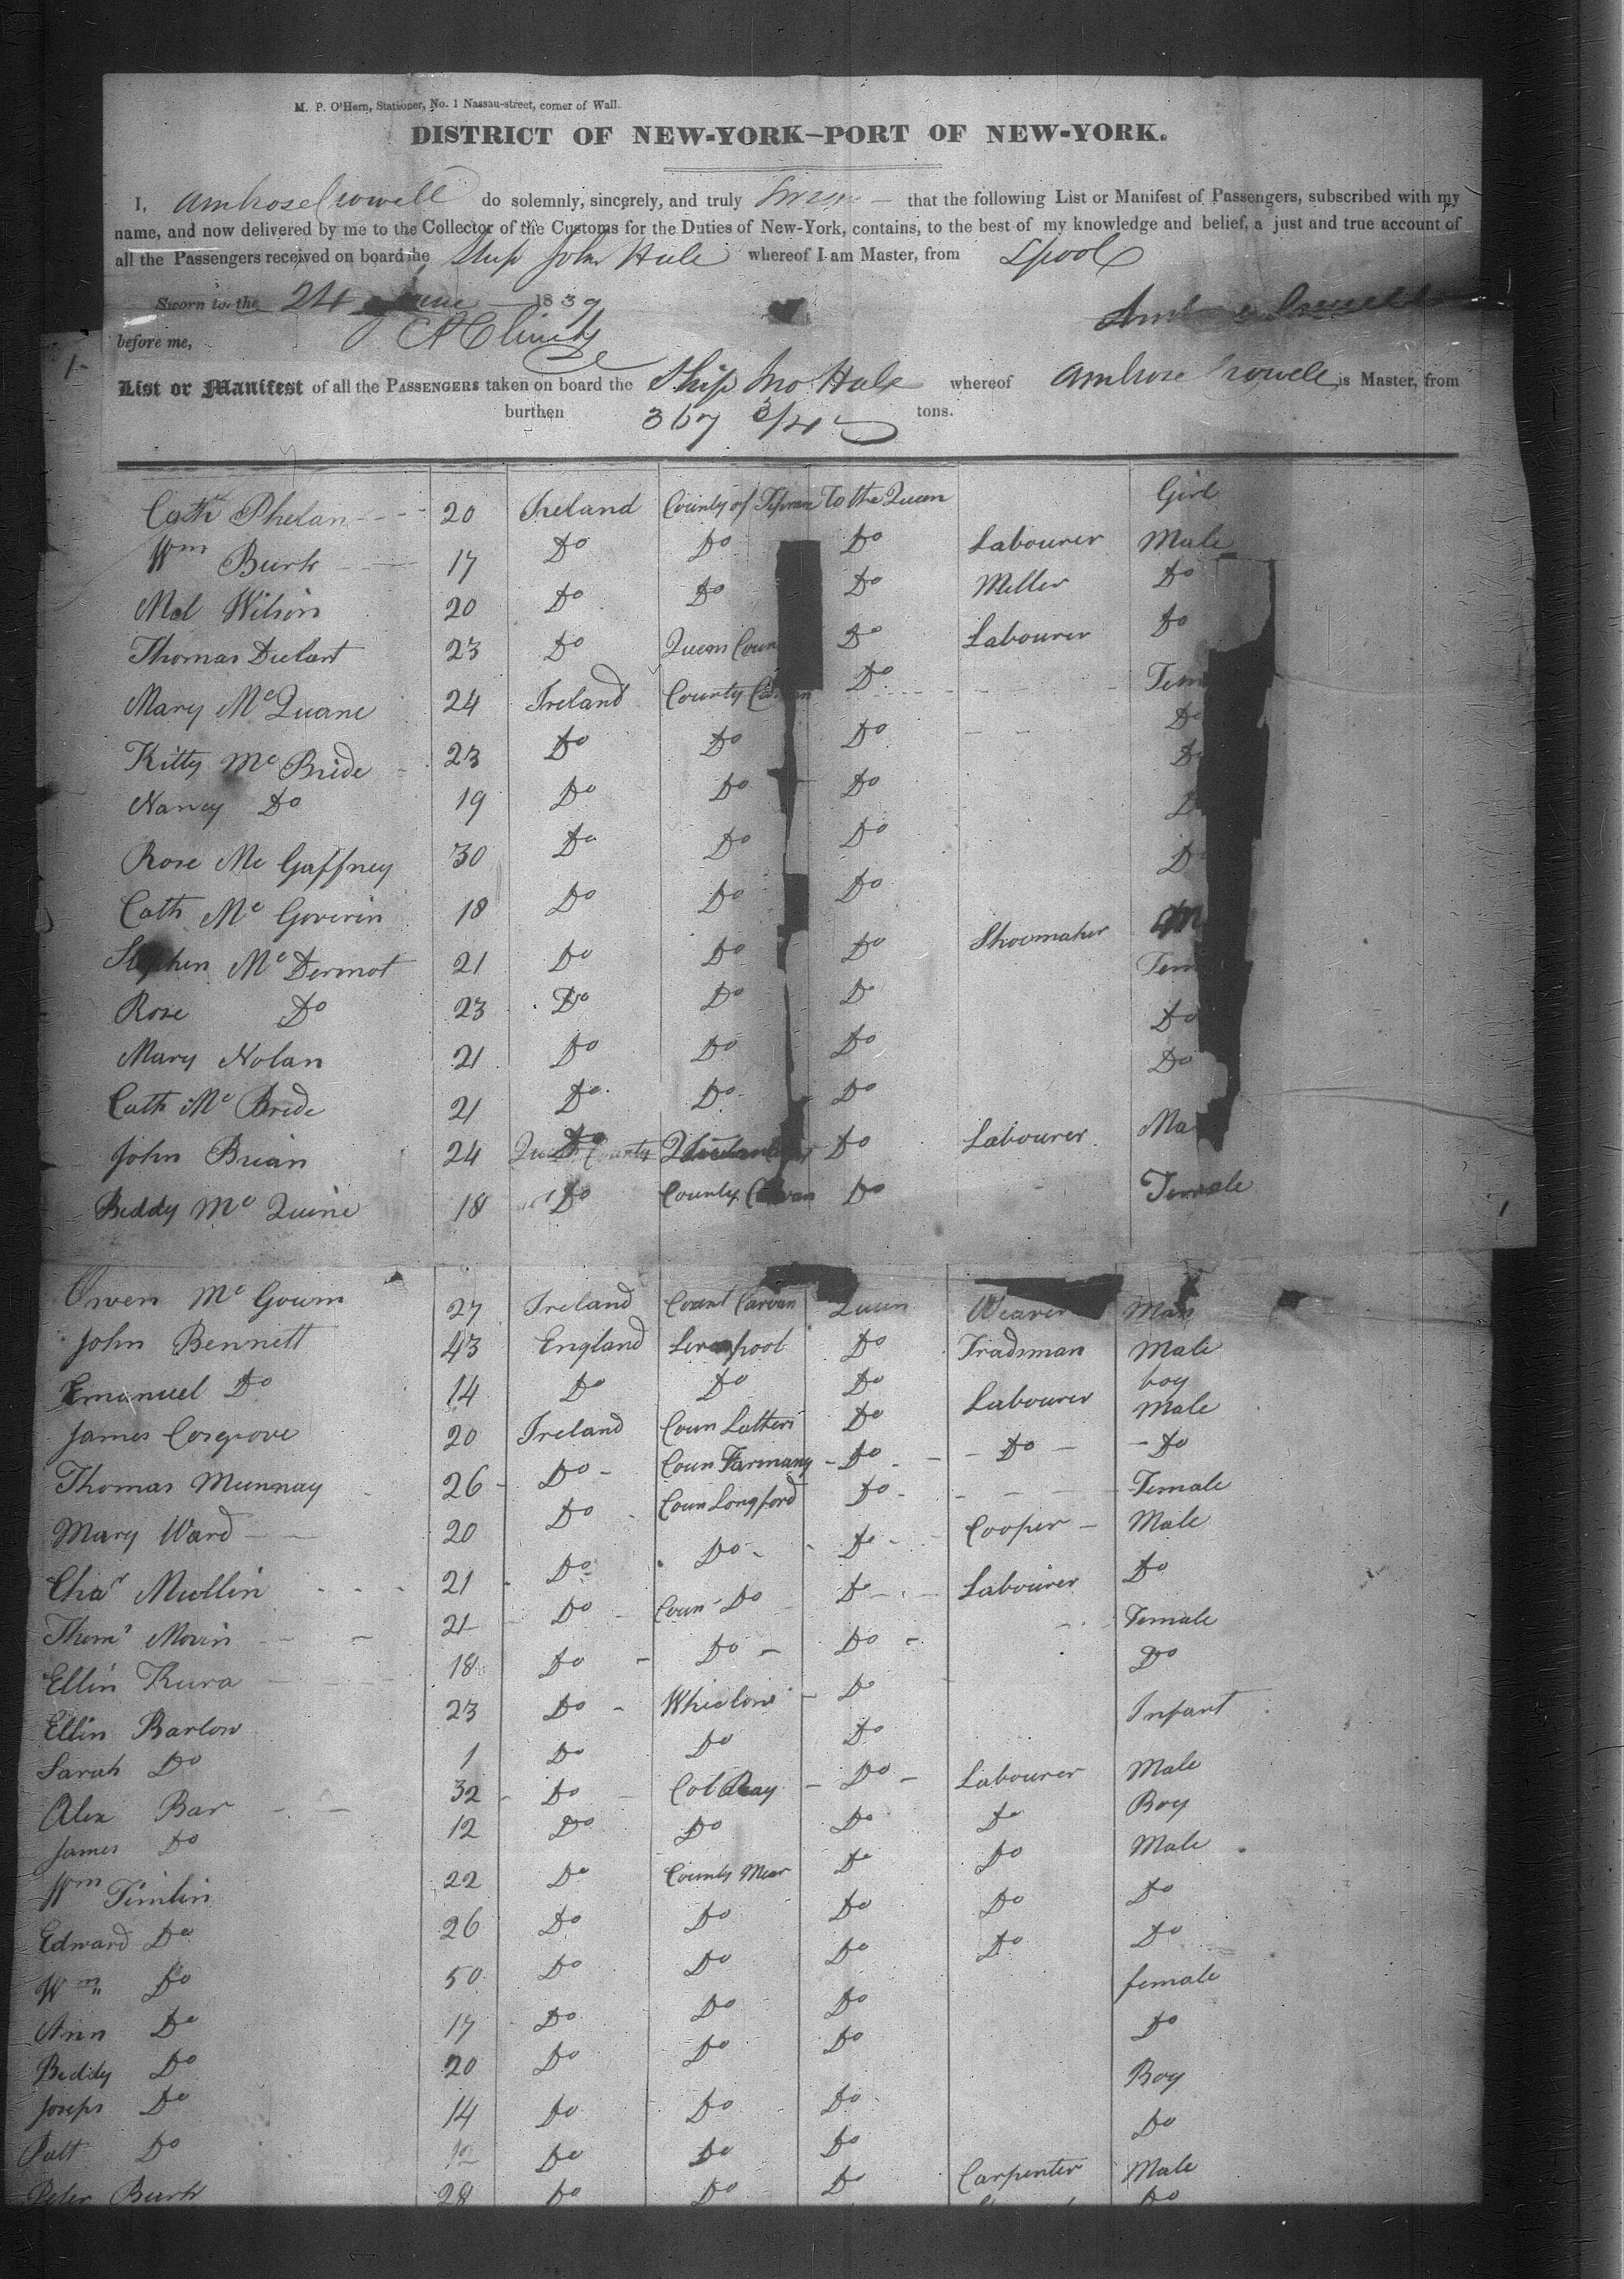 M. P. O'Hern, Stationer, No. 1 Nassau-street, corner of Wall.
DISTRICT OF NEW-YORK—PORT OF NEW-YORK.
I, Ambrose Crowell do solemnly, sincerely, and truly Swear — that the following List or Manifest of Passengers, subscribed with my
name, and now delivered by me to the Collector of the Customs for the Duties of New-York, contains, to the best of my knowledge and belief, a just and true account of
all the Passengers received on board the Ship John Hale whereof I am Master, from Lpool
Sworn to the 24 June 1839
before me,
List or Manifest of all the PASSENGERS taken on board the Ship Jno Hale whereof Ambrose Crowell is Master, from
burthen 367 3/4 tons.
Cath Phelan 20 Ireland County of To the Queen Girl
Wm Burk 17 Do Do Do Labourer Male
Wilson 20 Do Do Do Miller Do
Thomas 23 Do Queens Coun Do Labourer Do
Mary Mc Quane 24 Ireland County Do Fem
Kitty Mc Bride 23 Do Do Do Do
Nancy Do 19 Do Do Do Do
Rose Mc Gaffney 30 Do Do Do D
Cath Mc Goverin 18 Do Do Do D
Stephen Mc Dermot 21 Do Do Do Shoemaker M
Rose Do 23 Do Do Do Fem
Mary Nolan 21 Do Do Do Do
Cath Mc Bride 21 Do Do Do Do
John Brian 24 Do Do Labourer Ma
Beddy Mc Quine 18 Do County Do Female
Owen Mc Gowin 27 Ireland Count Carvan Queen Weaver Man
John Bennett 43 England Liverpool Do Tradsman Male
Emanuel Do 14 Do Do Do boy
James Cosgrove 20 Ireland Coun Do Labourer Male
Thomas Munnay 26 Do Coun Farmany Do Do Do
Mary Ward 20 Do Coun Longford Do Female
Chas Mullin 21 Do Do Do Cooper Male
Thoms Morin 21 Do Coun Do Do Labourer Do
Ellin 18 Do Do Do Female
Ellin Barlow 23 Do Do Do
Sarah Do 1 Do Do Do Infant
Alex Bar 32 Do Do Labourer Male
James Do 12 Do Do Do Do Boy
Wm Timlin 22 Do County Do Do Male
Edward Do 26 Do Do Do Do Do
Wm Do 50 Do Do Do Do Do
Ann Do 17 Do Do Do female
Beddy Do 20 Do Do Do Do
Joseph Do 14 Do Do Do Boy
Patt Do 12 Do Do Do Do
Peter Burk 28 Do Do Do Carpenter Male
Do